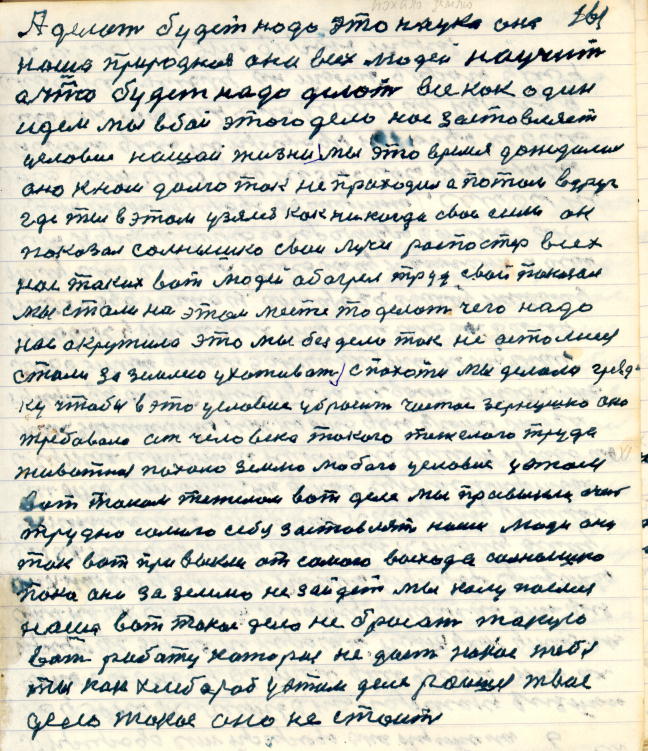 161
А делат будет надо это наука она
наша природная она всех людей научит
а что будет надо делат все как один
идем мы в бой этого дело нас заставляет
условие нашай жизни мы это время дождалис
оно к нам долго так не приходила а потом вдруг
где то в этом узялос как никогда свои сили он
показал солнышко свои лучи
нас таких вот людей обагрел труд свой показал
мы стали на этом месте то делат чего надо
нас окрутило это мы без дело так не осталися
стали за землею ухаживат с похоти мы делали гряд-
ку чтобы в это условие убросит чистае зернушко оно
требавало от человека такого тяжелого труда
животная пахано землю любого условие у этом
вот таком тежелом вот деле мы привыкли
трудно самого себя заставлят наши люди они
так вот привыкли от самого васхода солнышко
пока оно за землю не зайдет мы
наше вот такое дело не бросат такую
вот работу которая не дает покое тебе
ты как хлебароб у этом деле твое
дело такое оно не стоит